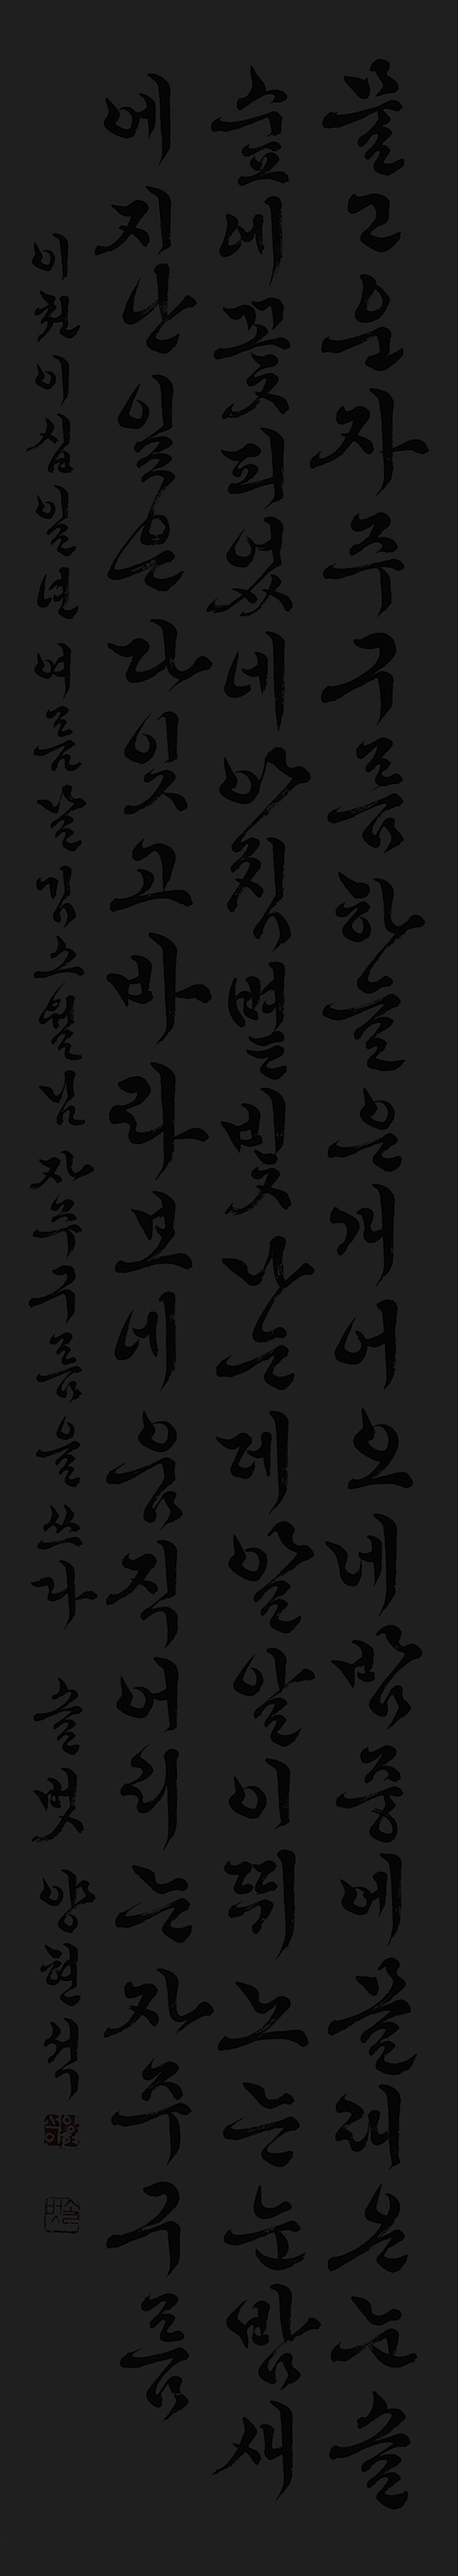 물고운자주구름하늘은개어오네밤중에몰래온눈솔
숲에꽃피었네아침볕빛나는데알알이뛰노는눈밤새
에지난일은다잊고바라보네움직어리는자주구름
이천이십일년 여름날김소월님 자주구름을쓰다 솔벗 양현석
솔벗